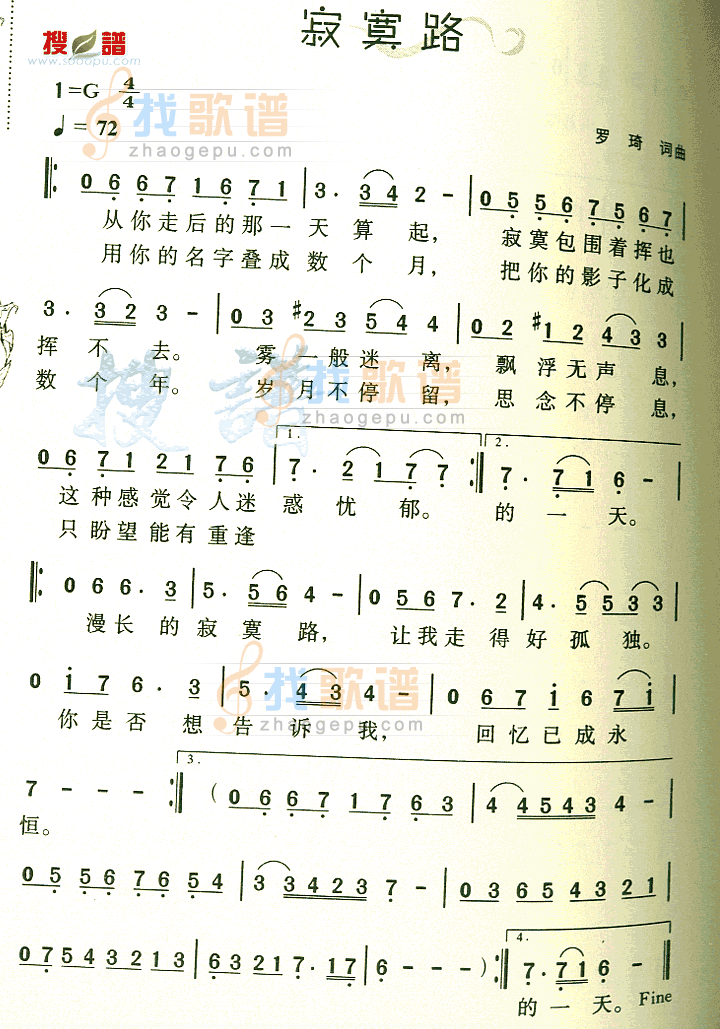 寂寞路
搜譜
www.sooopu.com
1=G 4/4
♩= 72
找歌谱
zhaogepu.com
罗 琦 词曲
0 6 6 7 1 6 7 1 | 3· 3 4 2 - | 0 5 5 6 7 5 6 7 |
从你走后的那一天算 起， 寂寞包围着挥也
用你的名字叠成数个 月， 把你的影子化成
3· 3 2 3 - | 0 3 #2 3 5 4 4 | 0 2 #1 2 4 3 3 |
挥 不 去。 雾 一般迷 离， 飘 浮无声 息，
数 个 年。 岁 月不停 留， 思 念不停 息，
搜譜
找歌谱
zhaogepu.com
1. 2.
0 6 7 1 2 1 7 6 | 7· 2 1 7 7 :| 7· 7 1 6 - |
这 种 感 觉 令 人 迷 惑 忧 郁。 的 一 天。
只 盼 望 能 有 重 逢
|: 0 6 6· 3 | 5· 5 6 4 - | 0 5 6 7· 2 | 4· 5 5 3 3 |
漫 长 的 寂 寞 路， 让我走 得好孤 独。
找歌谱
zhaogepu.com
0 i 7 6· 3 | 5· 4 3 4 - | 0 6 7 i 6 7 i |
你 是 否 想 告 诉 我， 回 忆 已 成 永
3.
7 - - - :| ( 0 6 6 7 1 7 6 3 | 4 4 5 4 3 4 - |
恒。
0 5 5 6 7 6 5 4 | 3 3 4 2 3 7 - | 0 3 6 5 4 3 2 1 |
4.
0 7 5 4 3 2 1 3 | 6 3 2 1 7· 1 7 | 6 - - - ) :| 7· 7 1 6 - |
的 一 天。 Fine